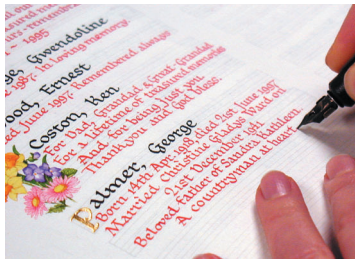 ge, Gwendoline
1987. In loving memory.
ood, Ernest
June 1997. Remembered always
Coston, Ken
For Dad, Grandad & Great-Grandad
For a lifetime of treasured memories
And for being just you.
Thank you and God bless.
Palmer, George
Born 14th Apr. 1918 died 21st June 1997
Married Christine Gladys Ward on
21st December 1941
Beloved father of Sandra Kathleen.
A countryman at heart